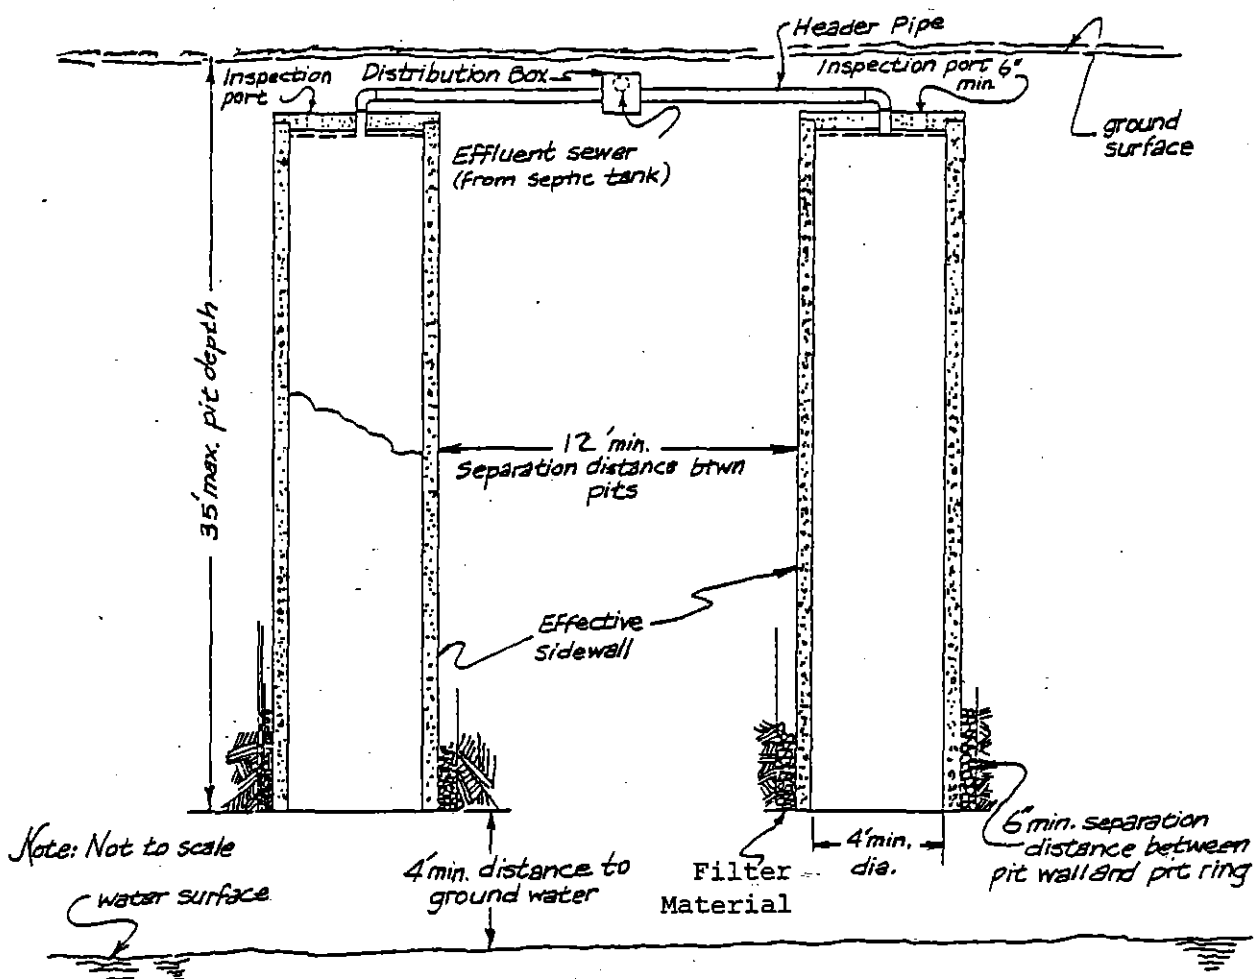 Header Pipe
Inspection
port
Distribution Box
Inspection port 6"
min
ground
surface
Effluent sewer
(from septic tank)
35' max. pit depth
12' min.
Separation distance btwn
pits
Effective
sidewall
Note: Not to scale
water surface
4' min. distance to
ground water
Filter
Material
4' min.
dia.
6" min. separation
distance between
pit wall and pit ring